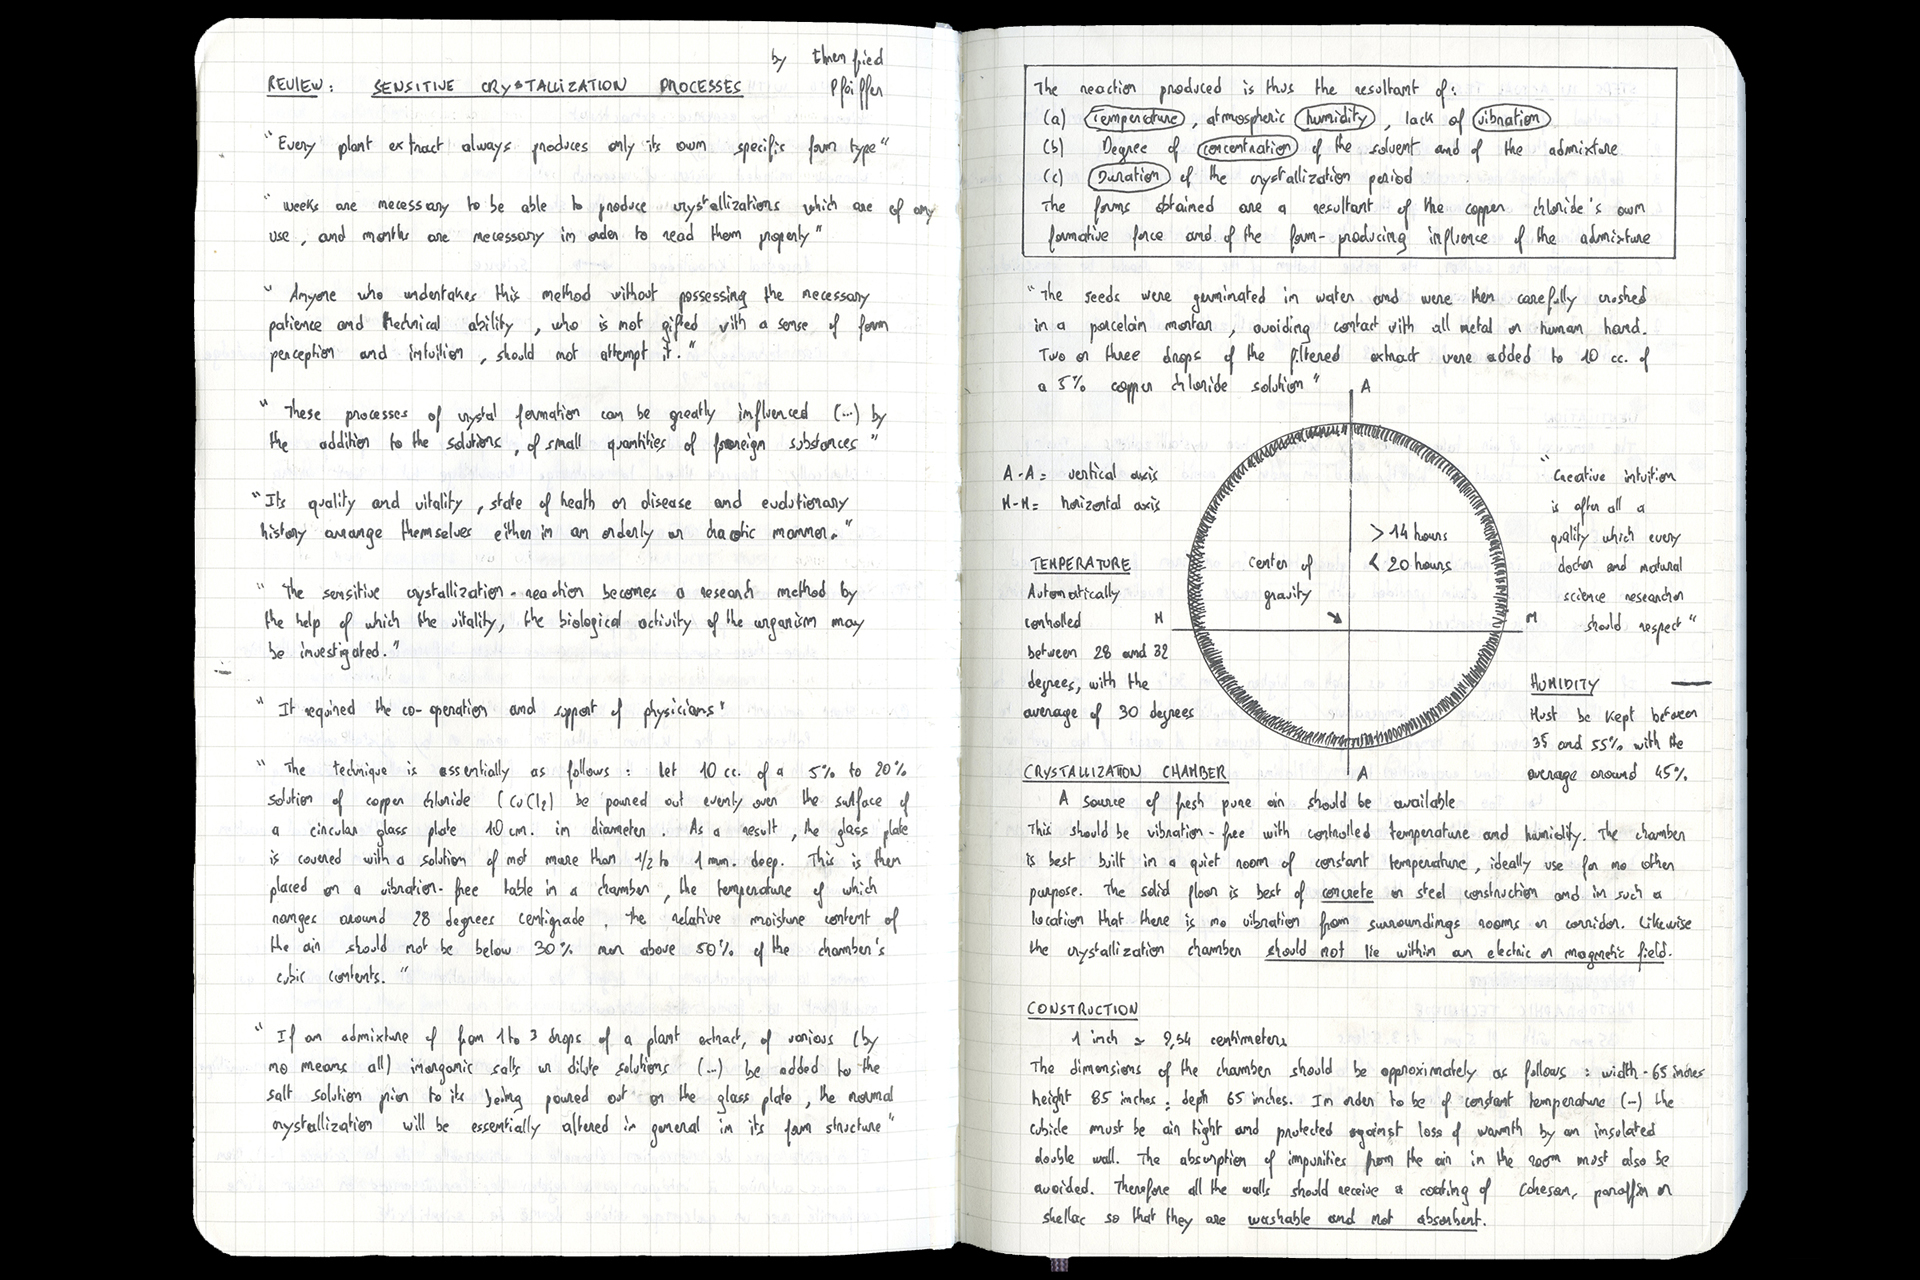 by Ehrenfried
REVIEW: SENSITIVE CRYSTALLIZATION PROCESSES Pfeiffer
"Every plant extract always produces only its own specific form type"
"weeks are necessary to be able to produce crystallizations which are of any
use, and months are necessary in order to read them properly"
"Anyone who undertakes this method without possessing the necessary
patience and technical ability, who is not gifted with a sense of form
perception and intuition, should not attempt it."
"These processes of crystal formation can be greatly influenced (...) by
the addition to the solutions, of small quantities of foreign substances"
"Its quality and vitality, state of heath or disease and evolutionary
history arrange themselves either in an orderly or chaotic manner."
"The sensitive crystallization-reaction becomes a research method by
the help of which the vitality, the biological activity of the organism may
be investigated."
"It required the co-operation and support of physicians"
"The technique is essentially as follows: let 10 cc. of a 5% to 20%
solution of copper chloride (CuCl2) be poured out evenly over the surface of
a circular glass plate 10 cm. in diameter. As a result, the glass plate
is covered with a solution of not more than 1/2 to 1 mm. deep. This is then
placed on a vibration-free table in a chamber, the temperature of which
ranges around 28 degrees centigrade, the relative moisture content of
the air should not be below 30% nor above 50% of the chamber's
cubic contents."
"If an admixture of from 1 to 3 drops of a plant extract, of various (by
no means all) inorganic salts in dilute solutions (...) be added to the
salt solution prior to its being poured out on the glass plate, the normal
crystallization will be essentially altered in general in its form structure"
The reaction produced is thus the resultant of:
(a) Temperature, atmospheric humidity, lack of vibration
(b) Degree of concentration of the solvent and of the admixture
(c) Duration of the crystallization period
The forms obtained are a resultant of the copper chloride's own
formative force and of the form-producing influence of the admixture
"The seeds were germinated in water and were then carefully crushed
in a porcelain mortar, avoiding contact with all metal or human hand.
Two or three drops of the filtered extract were added to 10 cc. of
a 5% copper chloride solution"
A
A-A = vertical axis
H-H = horizontal axis
> 14 hours
< 20 hours
center of
gravity
H
H
A
"Creative intuition
is after all a
quality which every
doctor and natural
science researcher
should respect"
TEMPERATURE
Automatically
controlled
between 28 and 32
degrees, with the
average of 30 degrees
HUMIDITY
Must be kept between
35 and 55% with the
average around 45%.
CRYSTALLIZATION CHAMBER
A source of fresh pure air should be available
This should be vibration-free with controlled temperature and humidity. The chamber
is best built in a quiet room of constant temperature, ideally use for no other
purpose. The solid floor is best of concrete or steel construction and in such a
location that there is no vibration from surroundings rooms or corridor. Likewise
the crystallization chamber should not lie within an electric or magnetic field.
CONSTRUCTION
1 inch = 2,54 centimeters
The dimensions of the chamber should be approximately as follows: width - 65 inches
height 85 inches; depth 65 inches. In order to be of constant temperature (...) the
cubicle must be air tight and protected against loss of warmth by an insulated
double wall. The absorption of impurities from the air in the room must also be
avoided. Therefore all the walls should receive a coating of Cohesan, paraffin or
shellac so that they are washable and not absorbent.